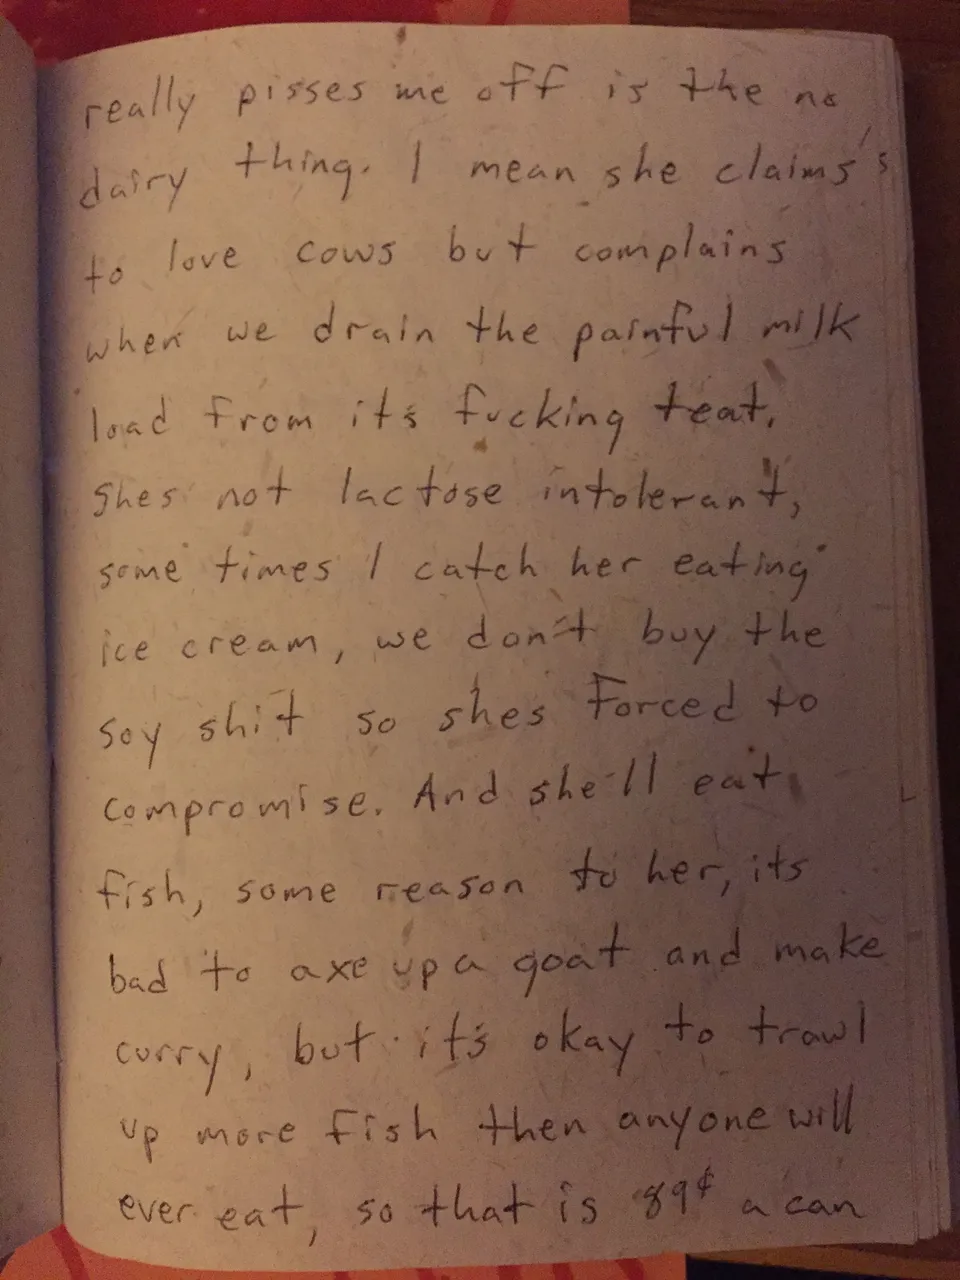 really pisses me off is the no
dairy thing. I mean she claims
to love cows but complains
when we drain the painful milk
load from it's fucking teat.
shes not lactose intolerant,
some times I catch her eating
ice cream, we don't buy the
soy shit so shes forced to
compromise. And she'll eat
fish, some reason to her, its
bad to axe up a goat and make
curry, but it's okay to trawl
up more fish then anyone will
ever eat, so that is 89¢ a can